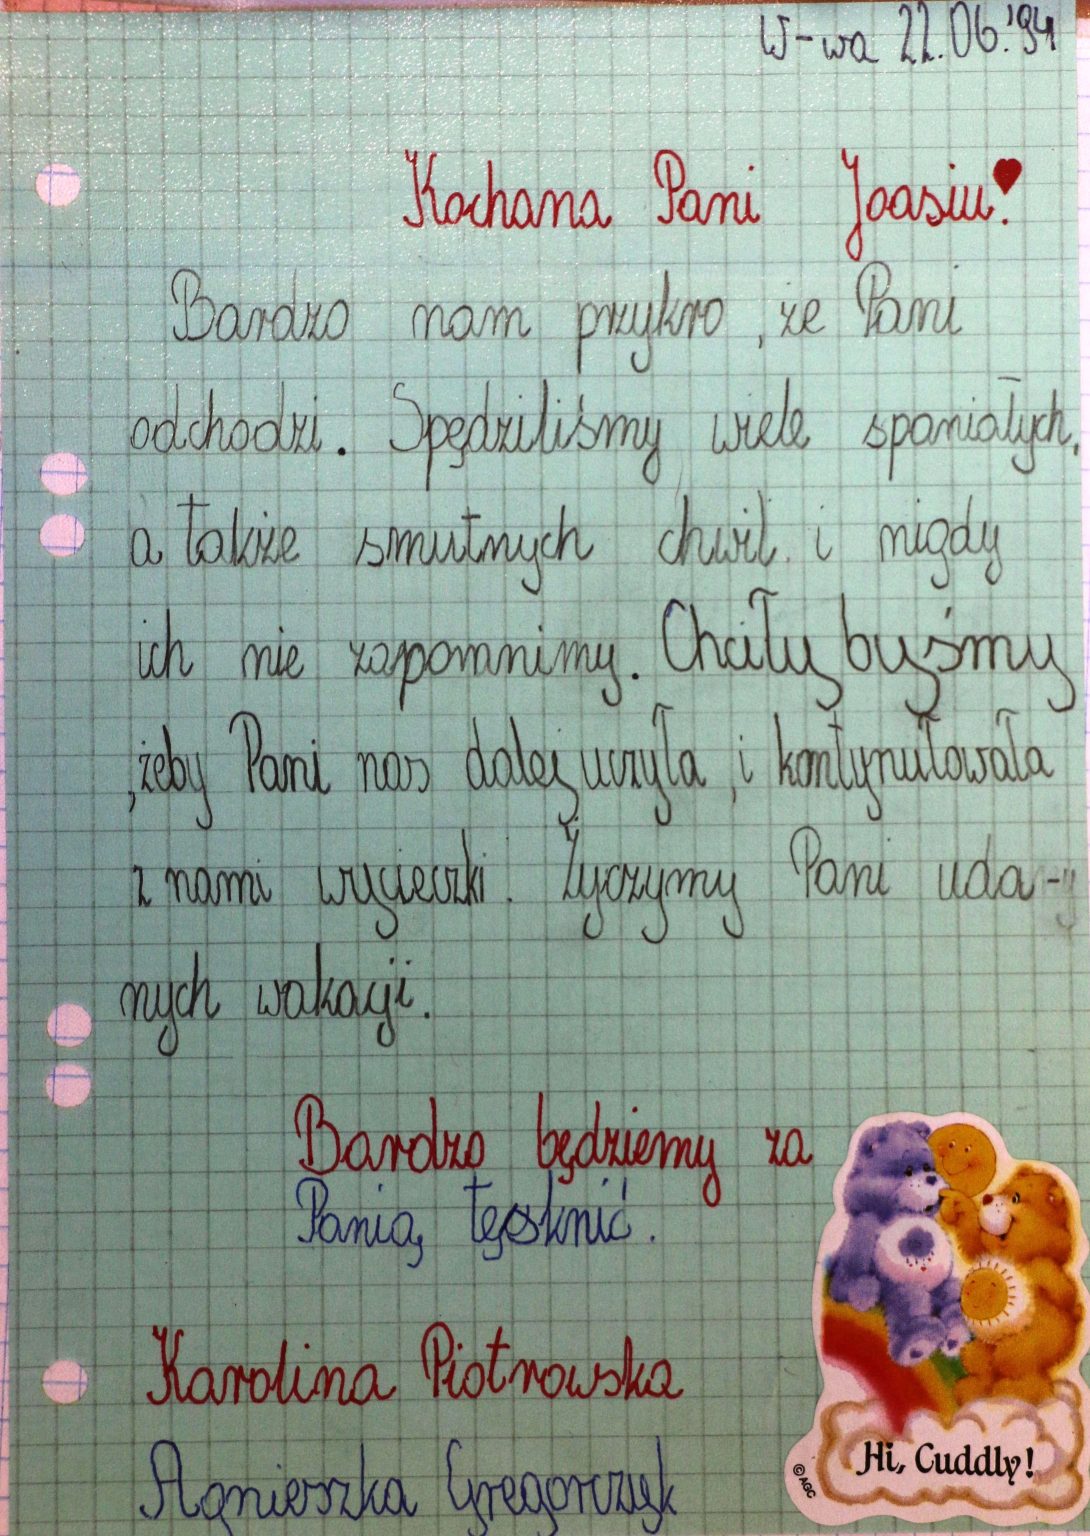 W-wa 22.06.'94
Kochana Pani Joasiu!
Bardzo nam przykro, że Pani
odchodzi. Spędziliśmy wiele spaniałych,
a także smutnych chwil i nigdy
ich nie zapomnimy. Chciły byśmy
,żeby Pani nas dalej uczyła, i kontynułowała
z nami wycieczki. Życzymy Pani uda-
nych wakacji.
Bardzo będziemy za
Panią tęsknić.
Karolina Piotrowska
Agnieszka Gregorczyk
Hi, Cuddly!
©AGC